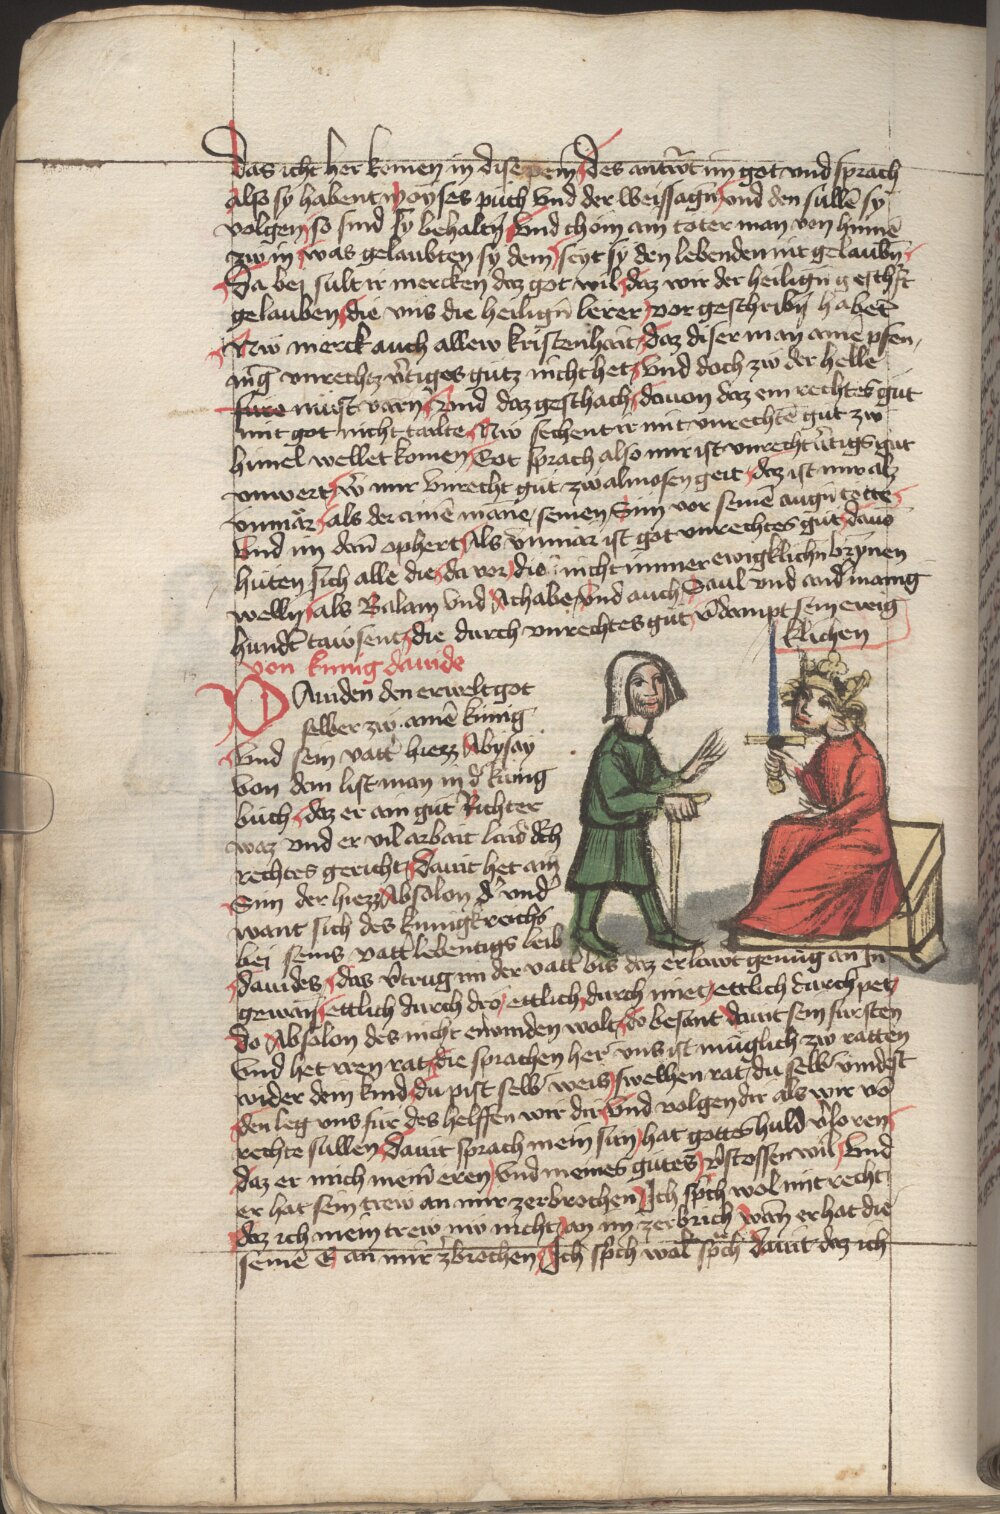 das icht her komen in dise pein Des antwurt im got vnd sprach
also sy habent moyses puch vnd der weissagn vnd den sullē sy
volgen so sind sy behaltn̄ vnd chöm ain toter man von hinnē
zw in was gelaubten sy dem seyt sy den lebenden nit gelaubn̄
Da bej sult ir mercken daz got wil daz wir der heilign̄ geschrft
gelauben die vns die heilign̄ lerer vor geschribn̄ habēt
Nw merck auch allew kristenhait daz diser man ainē pfen
ing vnrechtz vͤtiges gütz nicht het vnd doch zw der helle
fure müst varn Vnd daz geschach dauon daz ein rechtes güt
mit got nicht tailte Nw sechent ir mit vnrechtē güt zw
himel wellet komen Got sprach also mir ist vnrecht vͤtigs güt
vnwert wͤ mir vnrecht güt zw almosen geit daz ist mir als
vnmär als der ainē manē seinen Sün vor seinē augn̄ totte
Vnd im dan̄ ophert Als vnmar ist got vnrechtes güt dauō
hüten sich alle die da vor die nicht immer ewigklichn̄ brynnen
welln̄ als Balam vnd Achabe vnd auch Saul vnd andͤ manig
hundͤt tawsentz die durch vnrechtes güt vͤdampt sein ewig
klichen
von kunig dauide
Dauiden den erwelt got
selber zw ainē künig
Vnd sein vatͤ hiezz Abysay
von dem list man in dͤ künig
büch daz er ain güt Richter
waz vnd er vil arbait laid dch
rechtes gericht Dauit het ain
Sun der hiezz Absolon dͤ vndͤ
want sich des künigkreichs
bei seins vatͤ lebentigs leib
dauides das vͤtrug im der vatͤ bis daz er lawt genüg an In
gewan ettlich durch dro ettlich durch miet ettlich durch pet
do Absolon des nicht erwinden wolt do besant dauit sein fürsten
Vnd het wen rat die sprachen her vns ist müglich zw ratten
wider dein kind du pist selb weis swelhen rat du selb vindest
den leg vns für des helffen wir dir vnd volgen dir als wir vō
rechte sullen Dauit sprach mein sün hat gottes huld vͤloren
daz er mich mein̄ eren vnd meines gütes vͤstossen wil Vnd
er hat sein trew an mir zerbrochen Ich sp̄ch wol mit recht
daz ich mein trew nw nicht an im zerbrich wan̄ er hat die
seinē E an mir zͤbrochen Ich sp̄ch wol sp̄ch dauit daz ich